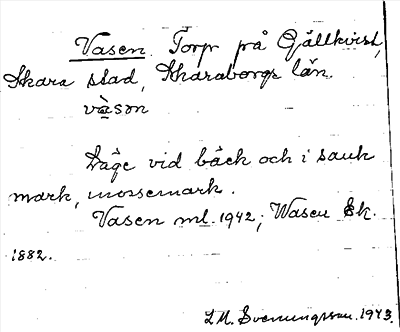 Vasen. Torp på Gällkvist,
Skara stad, Skaraborgs län.
vàson
Läge vid bäck och i sank
mark, mossemark.
Vasen ml. 1942; Wasen Ek.
1882.
L M. Svenungsson. 1943.